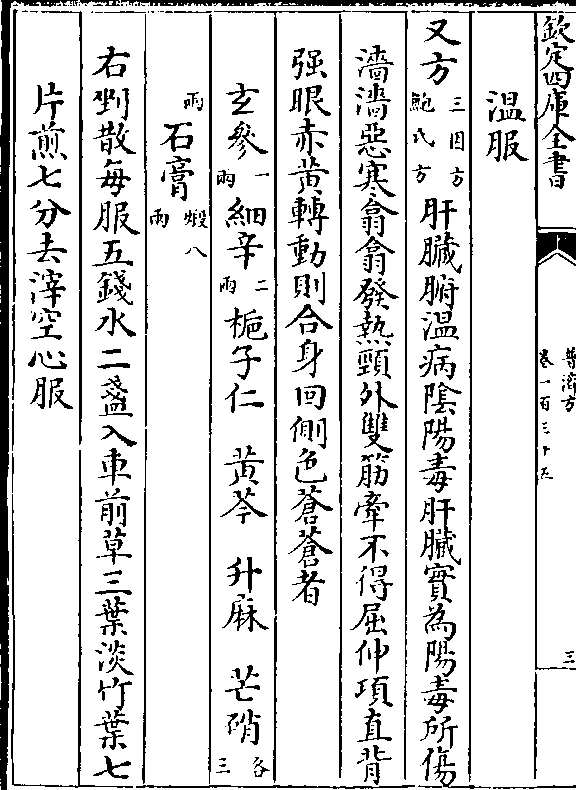 欽定四庫全書
普濟方
卷一百三十五
三
溫服
又方三因方鮑氏方肝臟腑溫病陰陽毒肝臟實為陽毒所傷
濇濇惡寒翕翕發熱頸外雙筋牽不得屈伸項直背
强眼赤黄轉動則合身回側色蒼蒼者
玄參一兩細辛二兩梔子仁 黄芩 升麻 芒硝各三
兩石膏煅八兩
右剉散每服五錢水二盞入車前草三葉淡竹葉七
片煎七分去滓空心服